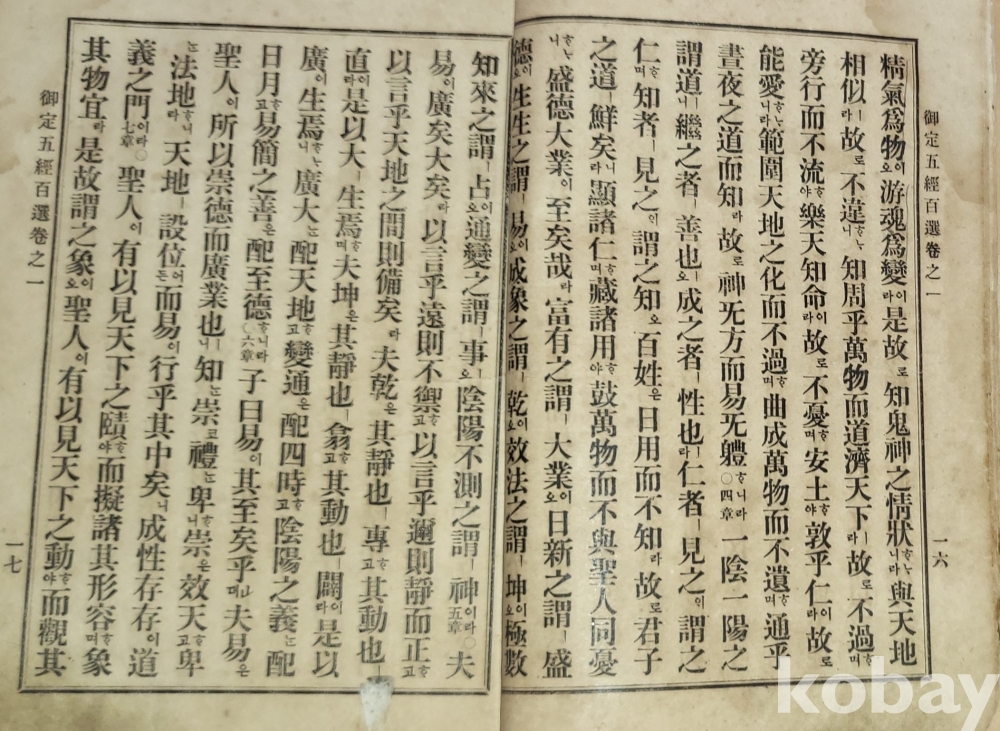 御定五經百選卷之一
一六
精氣爲物이오游魂爲變이라是故로知鬼神之情狀ᄒᆞᄂᆞ니라與天地
相似ㅣ라故로不違ㅣ니知周乎萬物而道濟天下ㅣ라故로不過ᄒᆞ며
旁行而不流ᄒᆞ야樂天知命이라故로不憂ᄒᆞ며安土ᄒᆞ야敦乎仁이라故로
能愛ᄒᆞᄂᆞ니라範圍天地之化而不過ᄒᆞ며曲成萬物而不遺ᄒᆞ며通乎
晝夜之道而知라故로神无方而易无軆ᄒᆞ니라○四章一陰一陽之
謂道ㅣ니繼之者ㅣ善也ㅣ오成之者ㅣ性也ㅣ라仁者ㅣ見之ᄋᆡ謂之
仁ᄒᆞ며知者ㅣ見之ᄋᆡ謂之知오百姓은日用而不知라故로君子
之道ㅣ鮮矣니라顯諸仁ᄒᆞ며藏諸用ᄒᆞ야鼓萬物而不與聖人同憂
ᄒᆞᄂᆞ니盛德大業이至矣哉라富有之謂ㅣ大業이오日新之謂ㅣ盛
德이오生生之謂ㅣ易이오成象之謂ㅣ乾이오效法之謂ㅣ坤이오極數
知來之謂ㅣ占이오通變之謂ㅣ事ㅣ오陰陽不測之謂ㅣ神이라○五章夫
易이廣矣大矣라以言乎遠則不禦ᄒᆞ고以言乎邇則靜而正ᄒᆞ고
以言乎天地之間則備矣라夫乾은其靜也ㅣ專ᄒᆞ고其動也ㅣ
直이라是以大ㅣ生焉ᄒᆞ며夫坤은其靜也ㅣ翕ᄒᆞ고其動也ㅣ闢이라是以
廣이生焉ᄒᆞᄂᆞ니廣大ᄂᆞᆫ配天地ᄒᆞ고變通은配四時ᄒᆞ고陰陽之義ᄂᆞᆫ配
日月ᄒᆞ고易簡之善은配至德ᄒᆞ니라○六章子曰易이其至矣乎ᅟᅵᆫ뎌夫易은
聖人이所以崇德而廣業也ㅣ니知ᄂᆞᆫ崇코禮ᄂᆞᆫ卑ᄒᆞ니崇은效天ᄒᆞ고卑
ᄂᆞᆫ法地ᄒᆞ니라天地ㅣ設位어든而易이行乎其中矣ㅣ니成性存存이道
義之門이라○七章聖人이有以見天下之賾ᄒᆞ야而擬諸其形容ᄒᆞ며象
其物宜라是故謂之象이오聖人이有以見天下之動ᄒᆞ야而觀其
御定五經百選卷之一
一七
kobay